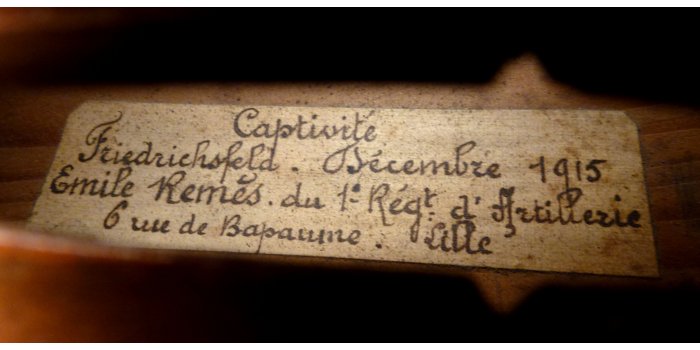 Captivité
Friedrichsfeld. Décembre 1915
Emile Remès. du 1e Régt. d'Artillerie
6 rue de Bapaume. Lille